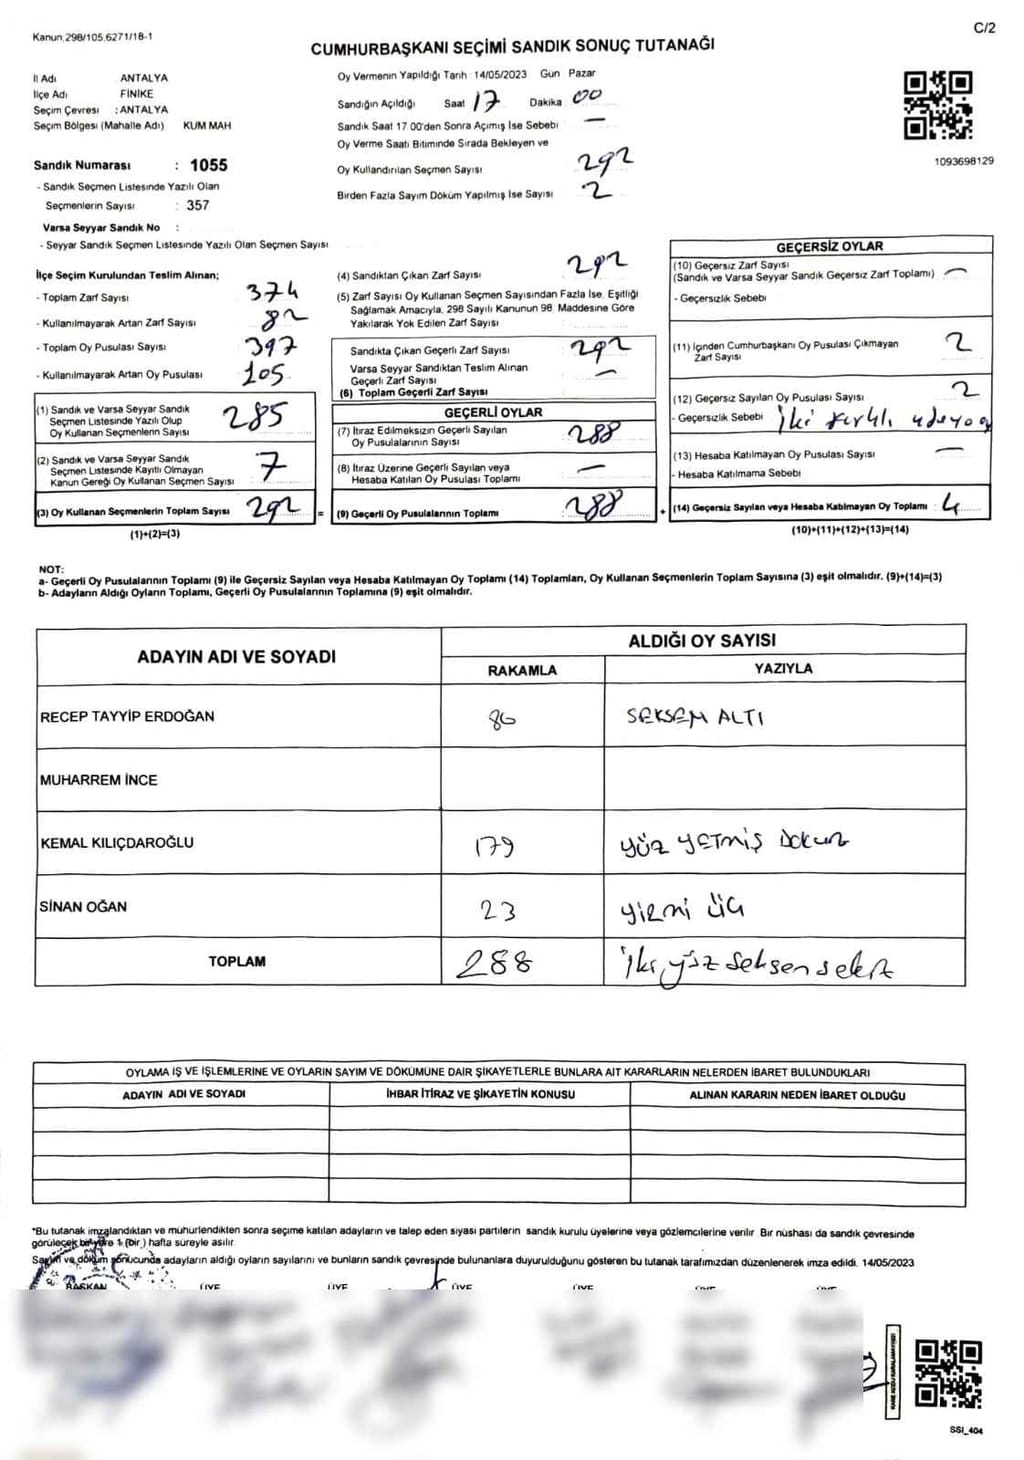 Kanun.298/105.6271/18-1
C/2
CUMHURBAŞKANI SEÇİMİ SANDIK SONUÇ TUTANAĞI
İl Adı ANTALYA
İlçe Adı FİNİKE
Seçim Çevresi : ANTALYA
Seçim Bölgesi (Mahalle Adı) KUM MAH
Sandık Numarası : 1055
- Sandık Seçmen Listesinde Yazılı Olan
Seçmenlerin Sayısı : 357
Varsa Seyyar Sandık No :
- Seyyar Sandık Seçmen Listesinde Yazılı Olan Seçmen Sayısı
Oy Vermenin Yapıldığı Tarih : 14/05/2023 Gün Pazar
Sandığın Açıldığı Saat 17 Dakika 00
Sandık Saat 17 00'den Sonra Açımış İse Sebebi —
Oy Verme Saati Bitiminde Sırada Bekleyen ve
Oy Kullandırılan Seçmen Sayısı 292
Birden Fazla Sayım Döküm Yapılmış İse Sayısı 2
1093698129
İlçe Seçim Kurulundan Teslim Alınan;
- Toplam Zarf Sayısı 374
- Kullanılmayarak Artan Zarf Sayısı 82
- Toplam Oy Pusulası Sayısı 397
- Kullanılmayarak Artan Oy Pusulası 105
(1) Sandık ve Varsa Seyyar Sandık
Seçmen Listesinde Yazılı Olup
Oy Kullanan Seçmenlerin Sayısı 285
(2) Sandık ve Varsa Seyyar Sandık
Seçmen Listesinde Kayıtlı Olmayan
Kanun Gereği Oy Kullanan Seçmen Sayısı 7
(3) Oy Kullanan Seçmenlerin Toplam Sayısı 292 =
(1)+(2)=(3)
(4) Sandıktan Çıkan Zarf Sayısı 292
(5) Zarf Sayısı Oy Kullanan Seçmen Sayısından Fazla İse, Eşitliği
Sağlamak Amacıyla, 298 Sayılı Kanunun 98. Maddesine Göre
Yakılarak Yok Edilen Zarf Sayısı
Sandıkta Çıkan Geçerli Zarf Sayısı 292
Varsa Seyyar Sandıktan Teslim Alınan
Geçerli Zarf Sayısı —
(6) Toplam Geçerli Zarf Sayısı
GEÇERLİ OYLAR
(7) İtiraz Edilmeksizin Geçerli Sayılan
Oy Pusulalarının Sayısı 288
(8) İtiraz Üzerine Geçerli Sayılan veya
Hesaba Katılan Oy Pusulası Toplamı —
(9) Geçerli Oy Pusulalarının Toplamı 288 +
GEÇERSİZ OYLAR
(10) Geçersiz Zarf Sayısı
(Sandık ve Varsa Seyyar Sandık Geçersiz Zarf Toplamı) —
- Geçersizlik Sebebi
(11) İçinden Cumhurbaşkanı Oy Pusulası Çıkmayan
Zarf Sayısı 2
(12) Geçersiz Sayılan Oy Pusulası Sayısı 2
- Geçersizlik Sebebi İki
(13) Hesaba Katılmayan Oy Pusulası Sayısı —
- Hesaba Katılmama Sebebi
(14) Geçersiz Sayılan veya Hesaba Katılmayan Oy Toplamı : 4
(10)+(11)+(12)+(13)=(14)
NOT:
a- Geçerli Oy Pusulalarının Toplamı (9) ile Geçersiz Sayılan veya Hesaba Katılmayan Oy Toplamı (14) Toplamları, Oy Kullanan Seçmenlerin Toplam Sayısına (3) eşit olmalıdır. (9)+(14)=(3)
b- Adayların Aldığı Oyların Toplamı, Geçerli Oy Pusulalarının Toplamına (9) eşit olmalıdır.
ADAYIN ADI VE SOYADI
ALDIĞI OY SAYISI
RAKAMLA YAZIYLA
RECEP TAYYİP ERDOĞAN 86 SEKSEN ALTI
MUHARREM İNCE
KEMAL KILIÇDAROĞLU 179 YÜZ YETMİŞ DOKUZ
SİNAN OĞAN 23 YİRMİ ÜÇ
TOPLAM 288 İki yüz seksen sekiz
OYLAMA İŞ VE İŞLEMLERİNE VE OYLARIN SAYIM VE DÖKÜMÜNE DAİR ŞİKAYETLERLE BUNLARA AİT KARARLARIN NELERDEN İBARET BULUNDUKLARI
ADAYIN ADI VE SOYADI İHBAR İTİRAZ VE ŞİKAYETİN KONUSU ALINAN KARARIN NEDEN İBARET OLDUĞU
*Bu tutanak imzalandıktan ve mühürlendikten sonra seçime katılan adayların ve talep eden siyasi partilerin sandık kurulu üyelerine veya gözlemcilerine verilir. Bir nüshası da sandık çevresinde
görülecek bir yere 1 (bir) hafta süreyle asılır.
Sayım ve döküm sonucunda adayların aldığı oyların sayılarını ve bunların sandık çevresinde bulunanlara duyurulduğunu gösteren bu tutanak tarafımızdan düzenlenerek imza edildi. 14/05/2023
BAŞKAN ÜYE ÜYE ÜYE ÜYE ÜYE ÜYE
SSI_404